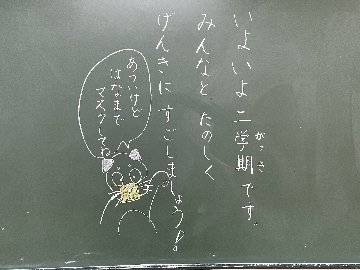 いよいよ二学期です。
がっき
みんなと たのしく
げんきに すごしましょう!
あついけど
はなまで
マスクしてね